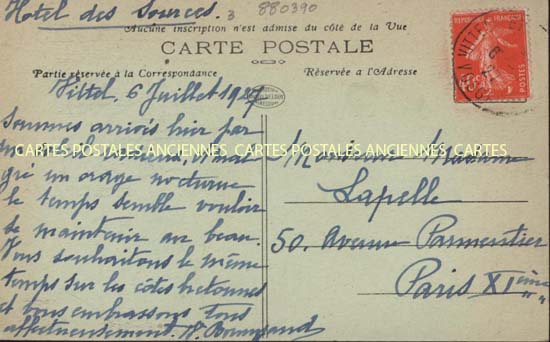 Hotel des Sources.
3 880390
Aucune inscription n'est admise du côté de la Vue
CARTE POSTALE
Partie réservée à la Correspondance
Réservée a l'Adresse
Vittel, 6 Juillet 1927
Sommes arrivés hier par
CARTES POSTALES ANCIENNES CARTES POSTALES ANCIENNES CARTES POSTALES ANCIENNES
gré un orage nocturne
le temps semble vouloir
se maintenir au beau.
Vous souhaitons le même
temps sur les côtes bretonnes
et vous embrassons tous
affectueusement.
Monsieur Madame
Lapelle
50. Avenue Parmentier
Paris XIème
REPUBLIQUE FRANÇAISE
POSTES